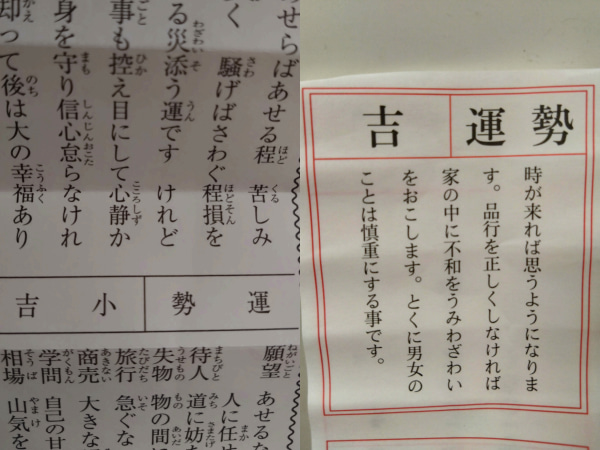 せらばあせる程 苦しみ
く 騒げばさわぐ程損を
る災添う運です けれど
事も控え目にして心静か
身を守り信心怠らなけれ
却って後は大の幸福あり
運勢 小吉
願望 あせるな
待人 人に任せ
失物 道に妨
旅行 物の間に
商売 急ぐな
学問 大きな
相場 自己の甘
山気を
勢運 吉
時が来れば思うようになりま
す。品行を正しくしなければ
家の中に不和をうみわざわい
をおこします。とくに男女の
ことは慎重にする事です。